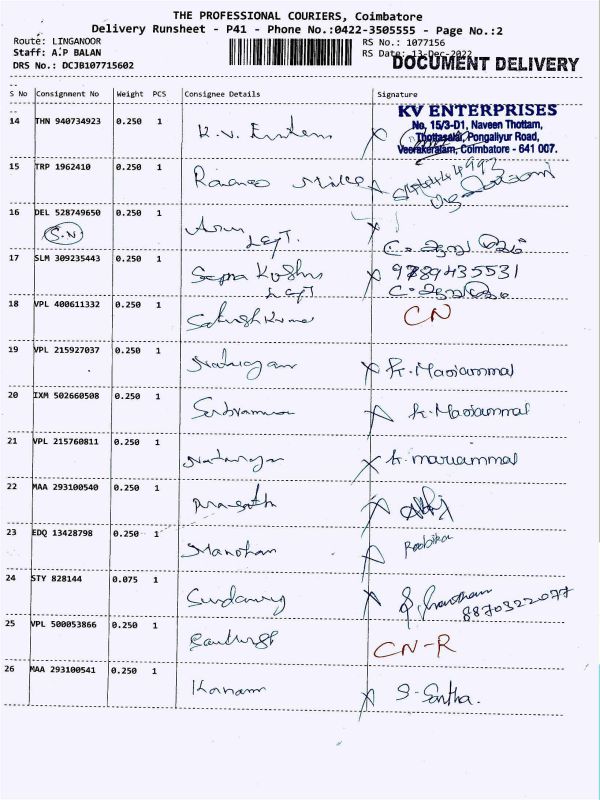 THE PROFESSIONAL COURIERS, Coimbatore
Delivery Runsheet - P41 - Phone No.:0422-3505555 - Page No.:2
Route: LINGANOOR RS No.: 1077156
Staff: A.P BALAN RS Date: 13-Dec-2022
DRS No.: DCJB107715602 DOCUMENT DELIVERY
S No Consignment No Weight PCS Consignee Details Signature
14 THN 940734923 0.250 1 K.V.
KV ENTERPRISES
No. 15/3-D1, Naveen Thottam,
Thottasalai, Pongaliyur Road,
Veerakeralam, Coimbatore - 641 007.
15 TRP 1962410 0.250 1
16 DEL 528749650 0.250 1 Arun
S.N
17 SLM 309235443 0.250 1 9789435531
18 VPL 400611332 0.250 1 Sathish Kumar CN
19 VPL 215927037 0.250 1 Natarajan K. Mariammal
20 IXM 502660508 0.250 1 K. Mariammal
21 VPL 215760811 0.250 1 Natarajan K. mariammal
22 MAA 293100540 0.250 1 Prasath
23 EDQ 13428798 0.250 1 Manohar
24 STY 828144 0.075 1 8870322077
25 VPL 500053866 0.250 1 CN-R
26 MAA 293100541 0.250 1 S. Santha.